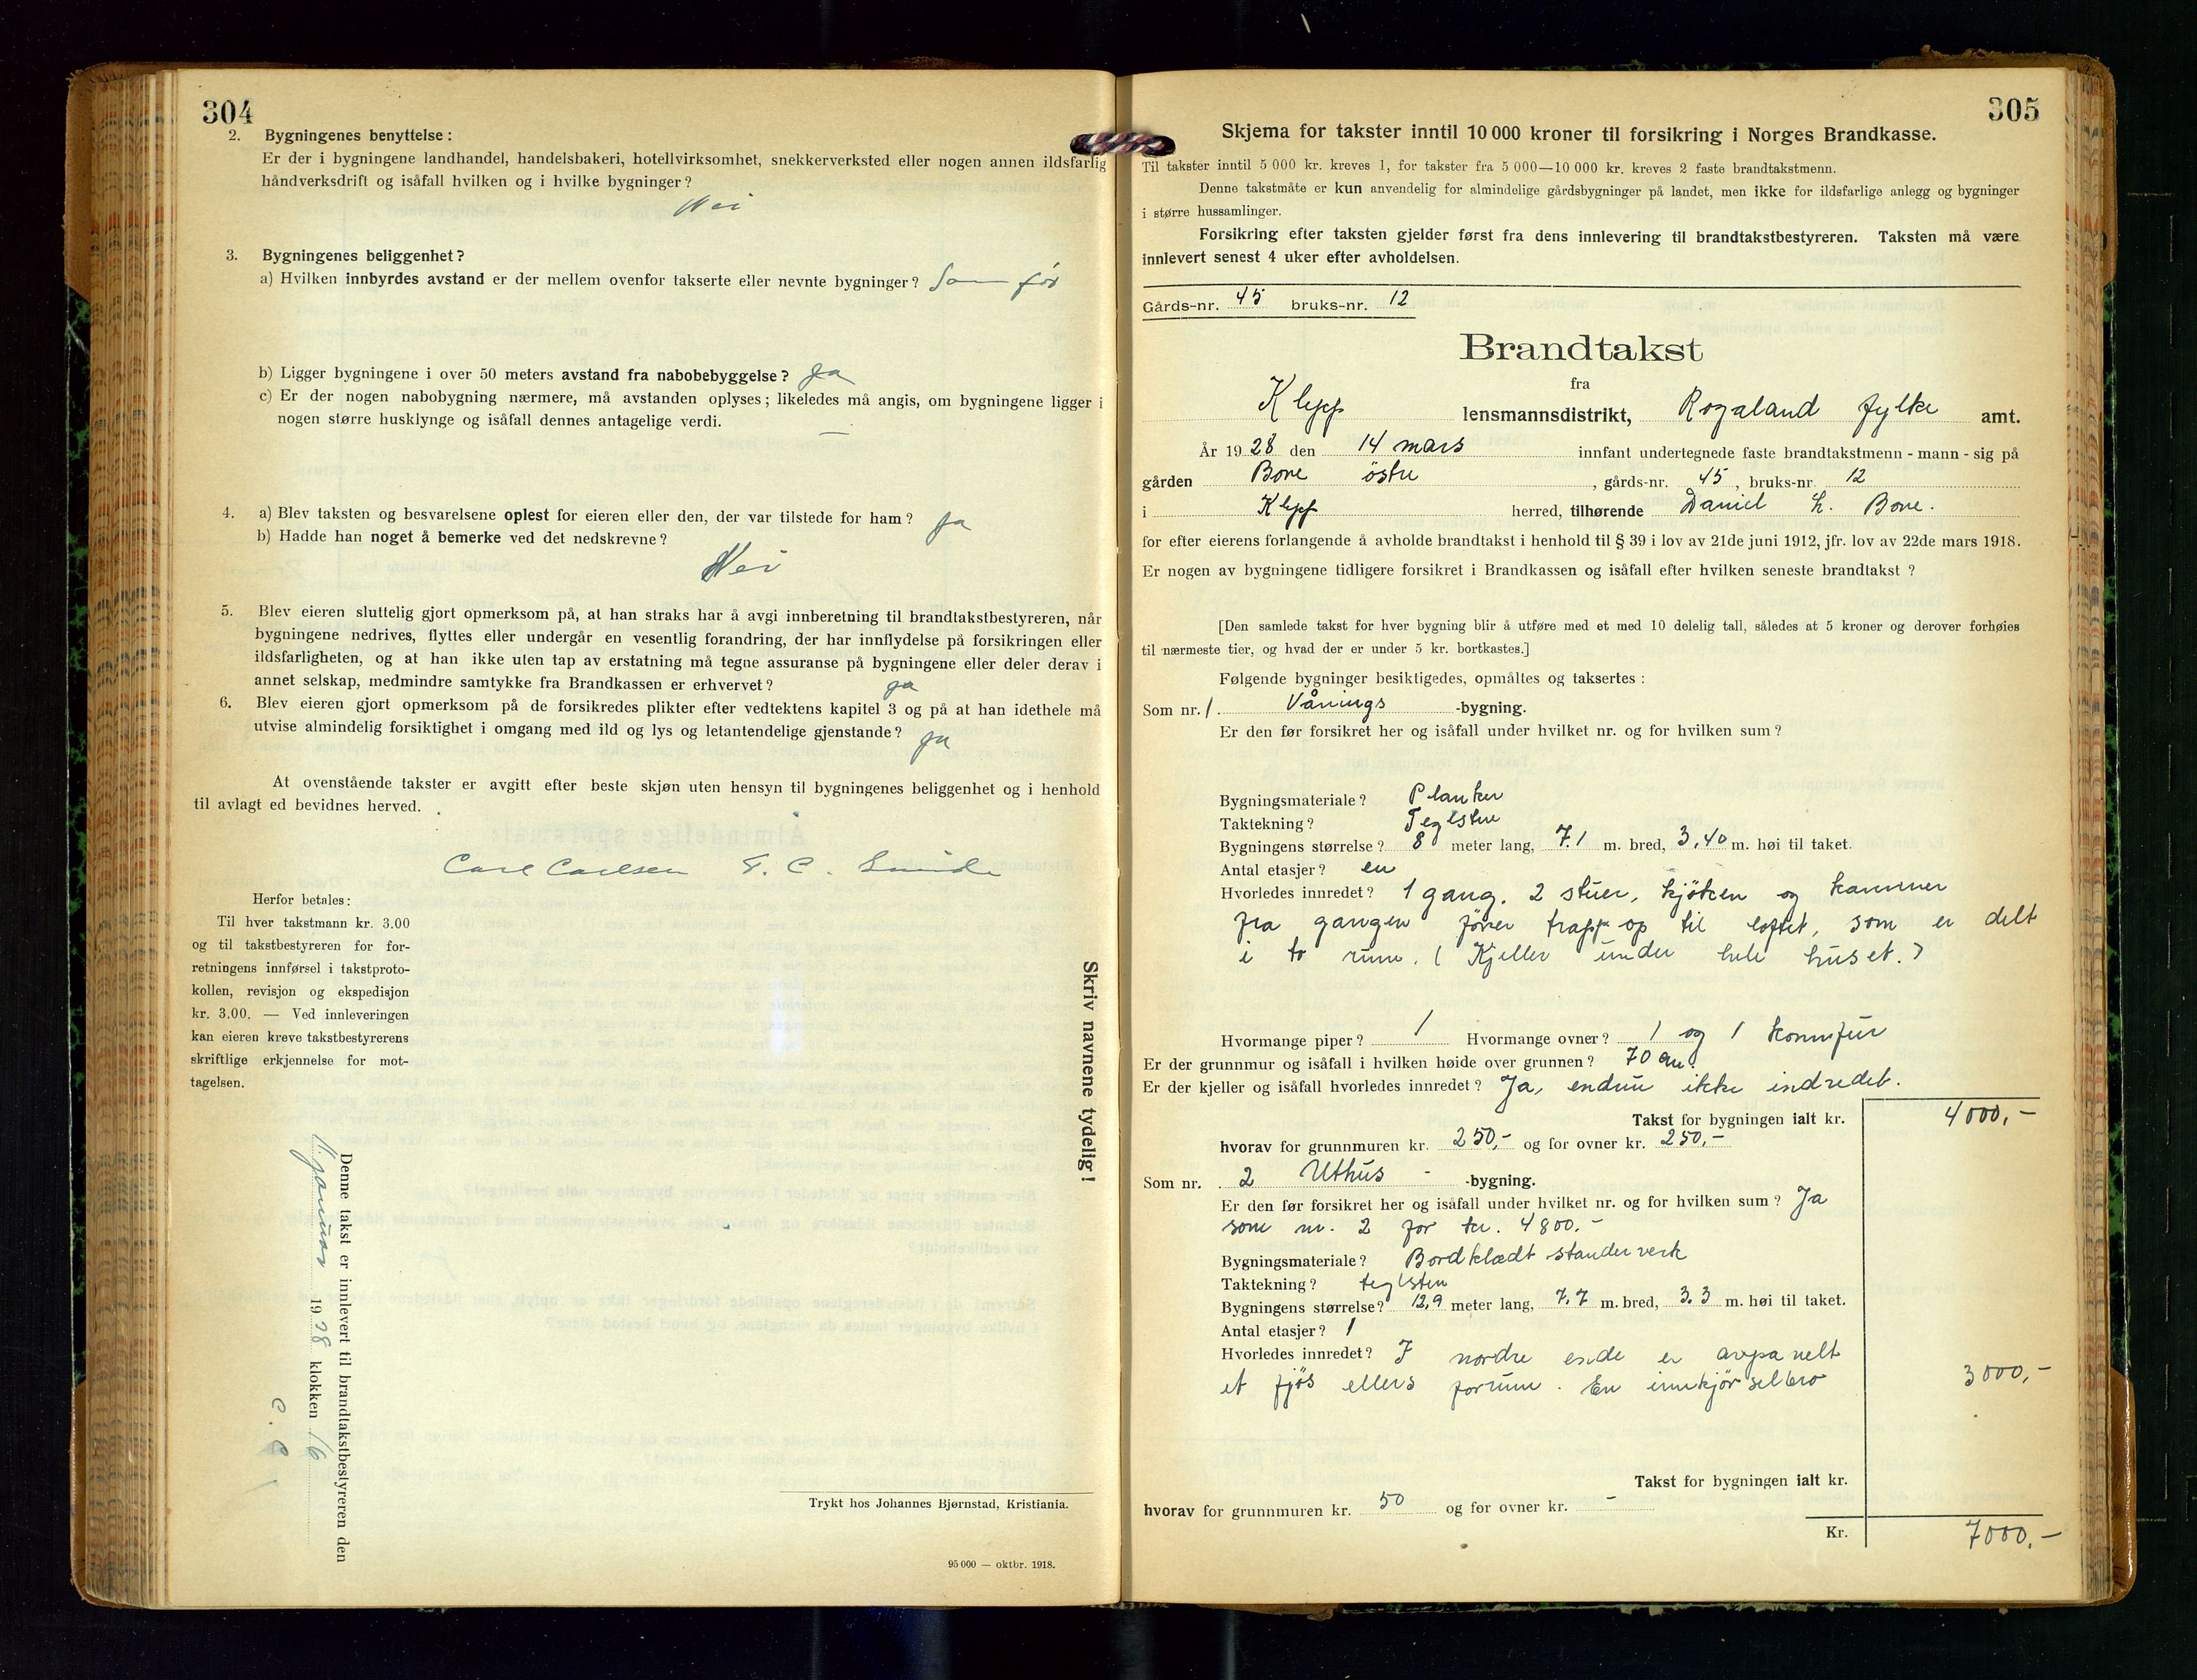 304
2. Bygningenes benyttelse:
Er der i bygningene landhandel, handelsbakeri, hotellvirksomhet, snekkerverksted eller nogen annen ildsfarlig
håndverksdrift og isåfall hvilken og i hvilke bygninger?
Nei
3. Bygningenes beliggenhet?
a) Hvilken innbyrdes avstand er der mellem ovenfor takserte eller nevnte bygninger? Som før
b) Ligger bygningene i over 50 meters avstand fra nabobebyggelse? Ja
c) Er der nogen nabobygning nærmere, må avstanden oplyses; likeledes må angis, om bygningene ligger i
nogen større husklynge og isåfall dennes antagelige verdi. —
4. a) Blev taksten og besvarelsene oplest for eieren eller den, der var tilstede for ham? Ja
b) Hadde han noget å bemerke ved det nedskrevne?
Nei
5. Blev eieren sluttelig gjort opmerksom på, at han straks har å avgi innberetning til brandtakstbestyreren, når
bygningene nedrives, flyttes eller undergår en vesentlig forandring, der har innflydelse på forsikringen eller
ildsfarligheten, og at han ikke uten tap av erstatning må tegne assuranse på bygningene eller deler derav i
annet selskap, medmindre samtykke fra Brandkassen er erhvervet? Ja
6. Blev eieren gjort opmerksom på de forsikredes plikter efter vedtektens kapitel 3 og på at han idethele må
utvise almindelig forsiktighet i omgang med ild og lys og letantendelige gjenstande? Ja
At ovenstående takster er avgitt efter beste skjøn uten hensyn til bygningenes beliggenhet og i henhold
til avlagt ed bevidnes herved.
Carl Carlsen
Herfor betales:
Til hver takstmann kr. 3.00
og til takstbestyreren for for-
retningens innførsel i takstproto-
kollen, revisjon og ekspedisjon
kr. 3.00. — Ved innleveringen
kan eieren kreve takstbestyrerens
skriftlige erkjennelse for mot-
tagelsen.
Skriv navnene tydelig!
Denne takst er innlevert til brandtakstbestyreren den
11. januar 1928 klokken 16
C. C.
Trykt hos Johannes Bjørnstad, Kristiania.
95 000 — oktbr. 1918.
305
Skjema for takster inntil 10 000 kroner til forsikring i Norges Brandkasse.
Til takster inntil 5 000 kr. kreves 1, for takster fra 5 000—10 000 kr. kreves 2 faste brandtakstmenn.
Denne takstmåte er kun anvendelig for almindelige gårdsbygninger på landet, men ikke for ildsfarlige anlegg og bygninger
i større hussamlinger.
Forsikring efter taksten gjelder først fra dens innlevering til brandtakstbestyreren. Taksten må være
innlevert senest 4 uker efter avholdelsen.
Gårds-nr. 45 bruks-nr. 12
Brandtakst
fra
Klepp lensmannsdistrikt, Rogaland fylke amt.
År 1928 den 14 mars innfant undertegnede faste brandtakstmenn - mann - sig på
gården Bore østre, gårds-nr. 45, bruks-nr. 12
i Klepp herred, tilhørende Daniel L. Bore.
for efter eierens forlangende å avholde brandtakst i henhold til § 39 i lov av 21de juni 1912, jfr. lov av 22de mars 1918.
Er nogen av bygningene tidligere forsikret i Brandkassen og isåfall efter hvilken seneste brandtakst?
[Den samlede takst for hver bygning blir å utføre med et med 10 delelig tall, således at 5 kroner og derover forhøies
til nærmeste tier, og hvad der er under 5 kr. bortkastes.]
Følgende bygninger besiktigedes, opmåltes og taksertes:
Som nr. 1. Vånings -bygning.
Er den før forsikret her og isåfall under hvilket nr. og for hvilken sum?
Bygningsmateriale? Planker
Taktekning? Teglsten
Bygningens størrelse? 8 meter lang, 7.1 m. bred, 3,40 m. høi til taket.
Antal etasjer? en
Hvorledes innredet? 1 gang, 2 stuer, kjøken og kammer
fra gangen fører trapp op til loftet, som er delt
i to rum. (Kjeller under hele huset.)
Hvormange piper? 1 Hvormange ovner? 1 og 1 komfur
Er der grunnmur og isåfall i hvilken høide over grunnen? 70 cm.
Er der kjeller og isåfall hvorledes innredet? Ja, endnu ikke indredet.
Takst for bygningen ialt kr. 4000,-
hvorav for grunnmuren kr. 250,- og for ovner kr. 250,-
Som nr. 2 Uthus - -bygning.
Er den før forsikret her og isåfall under hvilket nr. og for hvilken sum? Ja
som nr. 2 for kr. 4800.-
Bygningsmateriale? Bordklædt standerverk
Taktekning? teglsten
Bygningens størrelse? 12,9 meter lang, 7,7 m. bred, 3,3 m. høi til taket.
Antal etasjer? 1
Hvorledes innredet? I nordre ende er avpanelt
et fjøs ellers forrum. En innkjørselbro
3000,-
Takst for bygningen ialt kr.
hvorav for grunnmuren kr. 50 og for ovner kr. -
Kr. 7000,-